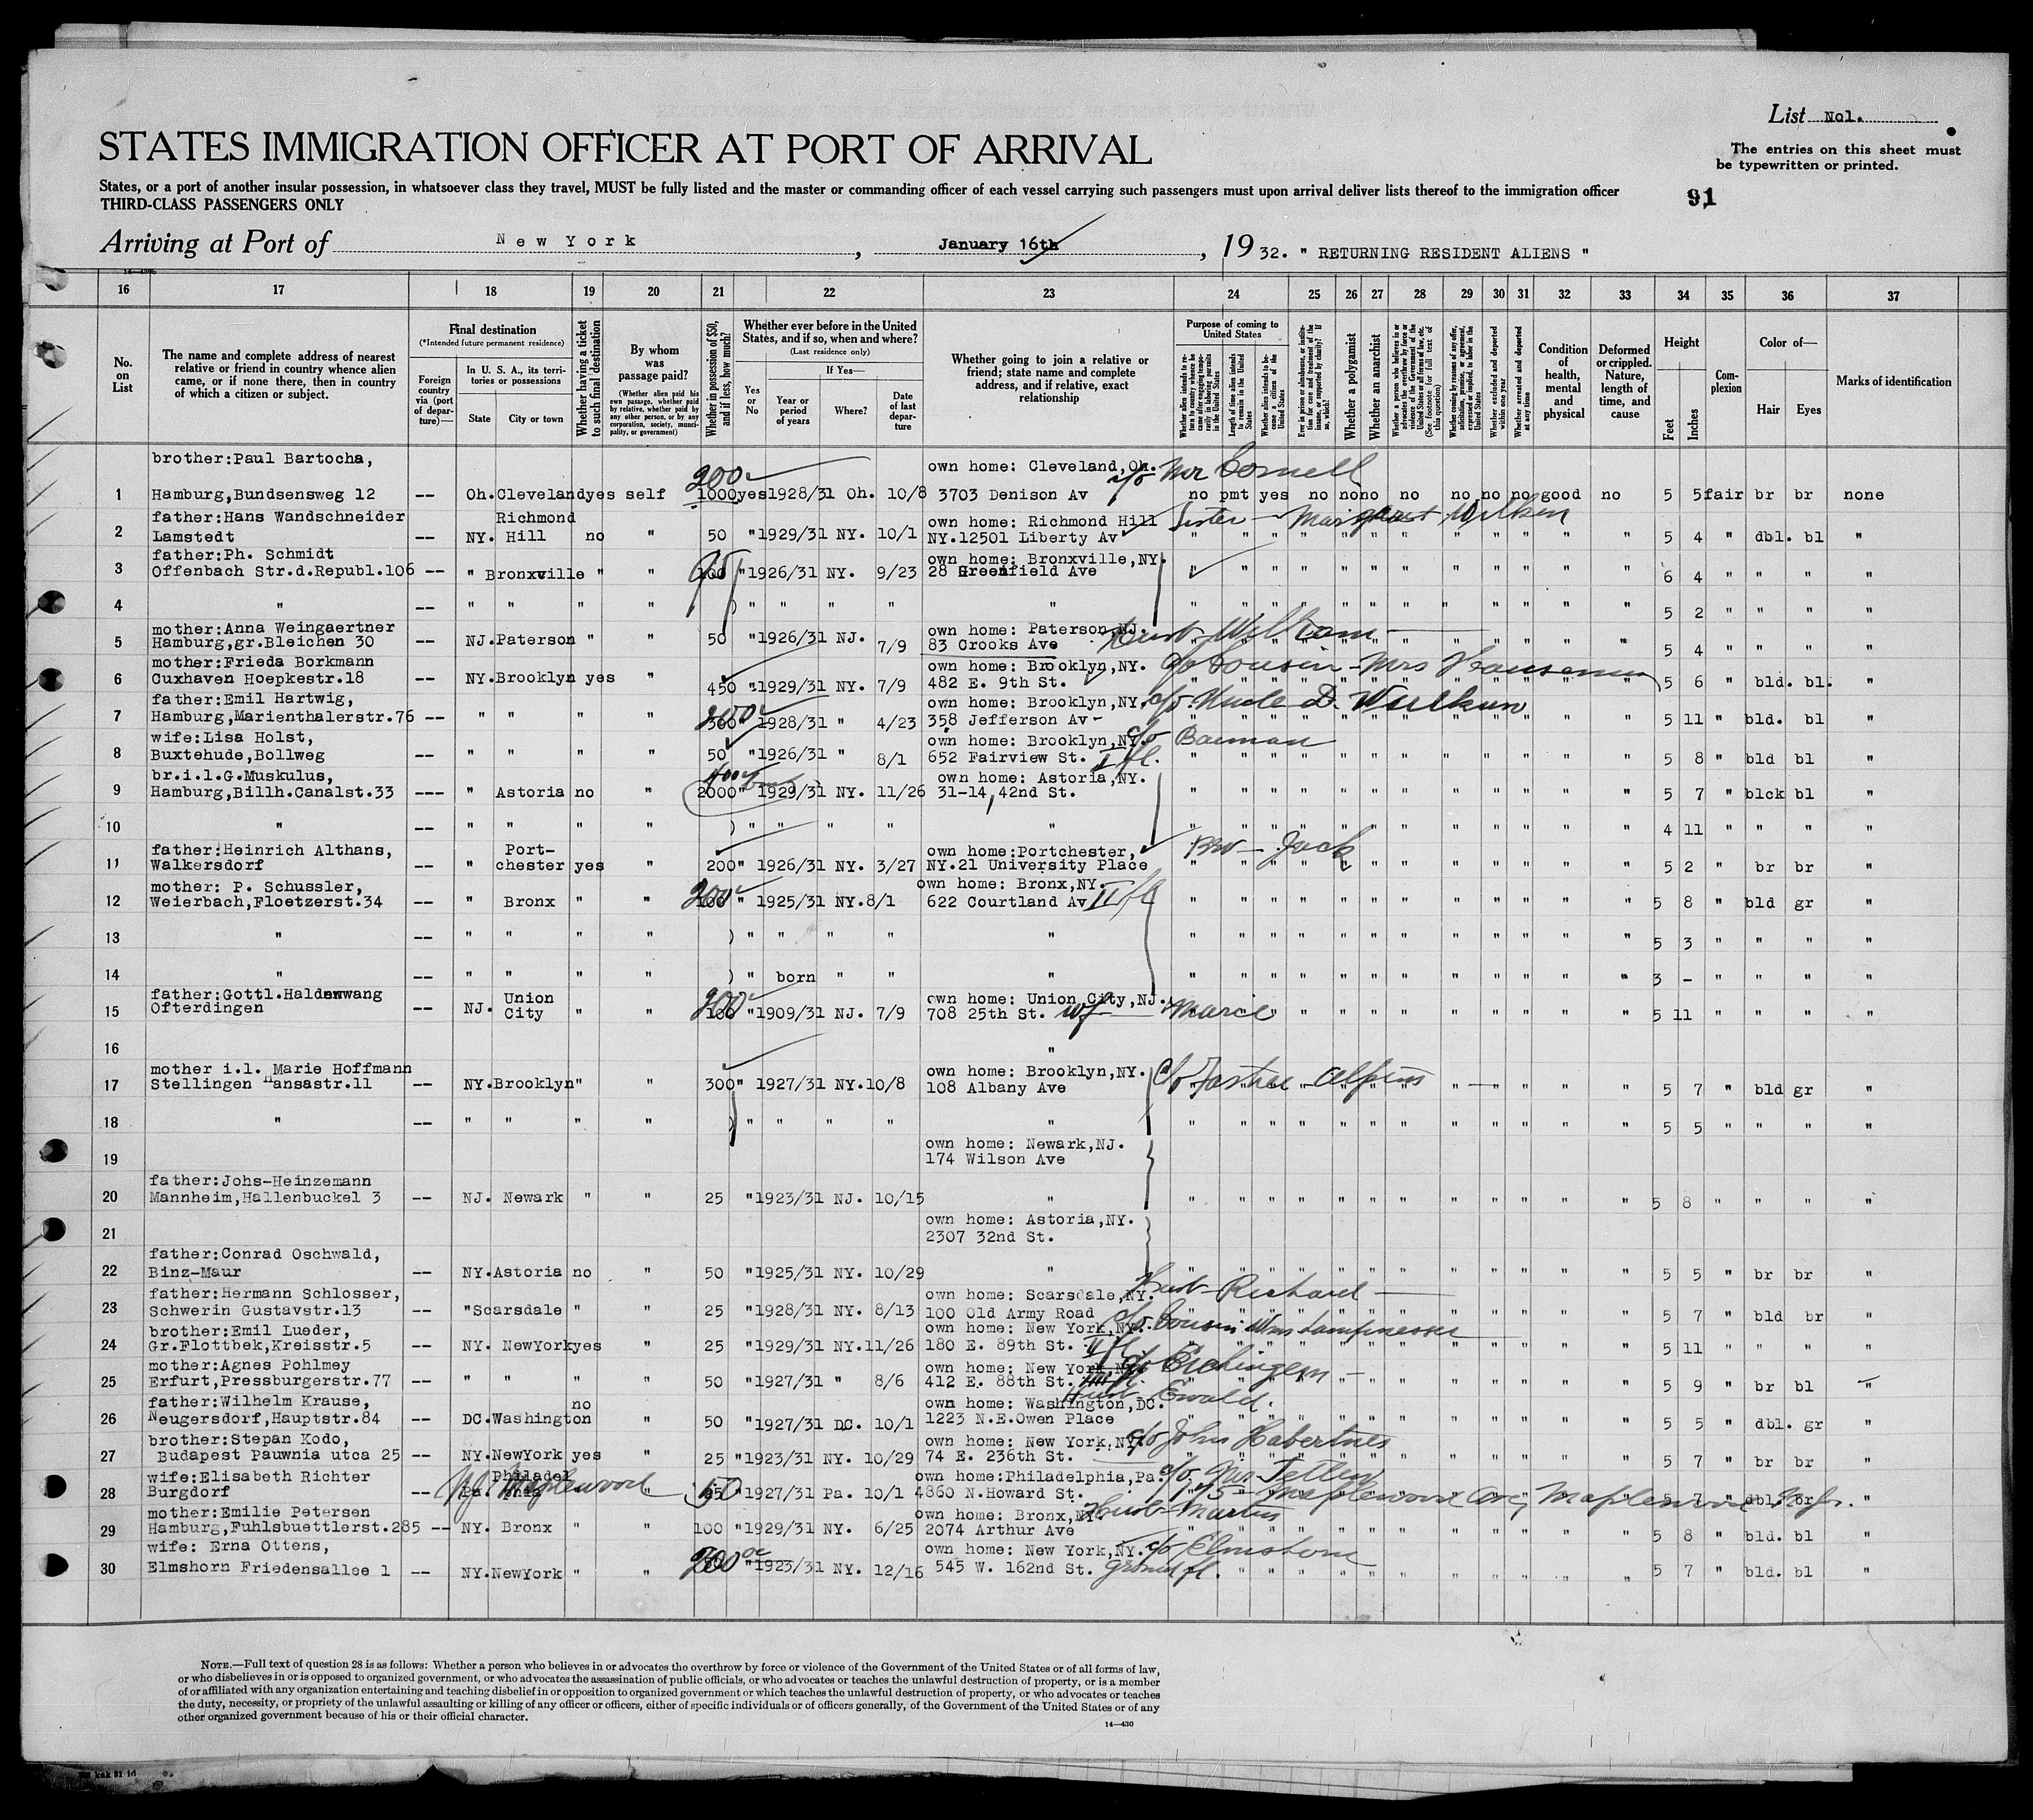 List No1.
STATES IMMIGRATION OFFICER AT PORT OF ARRIVAL
The entries on this sheet must
be typewritten or printed.
States, or a port of another insular possession, in whatsoever class they travel, MUST be fully listed and the master or commanding officer of each vessel carrying such passengers must upon arrival deliver lists thereof to the immigration officer
THIRD-CLASS PASSENGERS ONLY
91
Arriving at Port of New York, January 16th, 1932. " RETURNING RESIDENT ALIENS "
16 17 18 19 20 21 22 23 24 25 26 27 28 29 30 31 32 33 34 35 36 37
No. on List
The name and complete address of nearest relative or friend in country whence alien came, or if none there, then in country of which a citizen or subject.
Final destination
(*Intended future permanent residence)
Foreign country via (port of departure)—
In U. S. A., its territories or possessions
State
City or town
Whether having a ticket to such final destination
By whom was passage paid?
(Whether alien paid his own passage, whether paid by relative, whether paid by any other person, or by any corporation, society, municipality, or government)
Whether in possession of $50, and if less, how much?
Whether ever before in the United States, and if so, when and where?
(Last residence only)
Yes or No
If Yes—
Year or period of years
Where?
Date of last departure
Whether going to join a relative or friend; state name and complete address, and if relative, exact relationship
Purpose of coming to United States
Whether a polygamist
Whether an anarchist
Condition of health, mental and physical
Deformed or crippled. Nature, length of time, and cause
Height
Feet
Inches
Complexion
Color of—
Hair
Eyes
Marks of identification
brother:Paul Bartocha, own home: Cleveland,Oh. c/o Mr Cornell
200
1 Hamburg,Bundsensweg 12 -- Oh. Cleveland yes self 1000 yes 1928/31 Oh. 10/8 3703 Denison Av no pmt yes no no no no no no no good no 5 5 fair br br none
father:Hans Wandschneider Richmond own home: Richmond Hill Sister - Margaret Wilken
2 Lamstedt -- NY. Hill no " 50 " 1929/31 NY. 10/1 NY.12501 Liberty Av " " " " " " " " " " " " 5 4 " dbl. bl "
father:Ph. Schmidt own home: Bronxville,NY.
3 Offenbach Str.d.Republ.106 -- " Bronxville " " 100 " 1926/31 NY. 9/23 28 Greenfield Ave " " " " " " " " " " " 6 4 " " " "
4 " -- " " " " ) " " " " " " " " " " " " " " " " " 5 2 " " " "
mother:Anna Weingaertner own home: Paterson,NJ. Husb. William
5 Hamburg,gr.Bleichen 30 -- NJ. Paterson " " 50 " 1926/31 NJ. 7/9 83 Crooks Ave " " " " " " " " " " 5 4 " " " "
mother:Frieda Borkmann own home: Brooklyn,NY. c/o Cousin - Mrs
6 Cuxhaven Hoepkestr.18 -- NY. Brooklyn yes " 450 " 1929/31 NY. 7/9 482 E. 9th St. " " " " " " " " " " 5 6 " bld. bl. "
father:Emil Hartwig, own home: Brooklyn,NY. c/o Uncle D. Wulkun
7 Hamburg,Marienthalerstr.76 -- " " " " 300 " 1928/31 " 4/23 358 Jefferson Av- " " " " " " " " " " 5 11 " bld. bl "
wife:Lisa Holst, own home: Brooklyn,NY. c/o Bauman
8 Buxtehude,Bollweg -- " " " " 50 " 1926/31 " 8/1 652 Fairview St. I fl. " " " " " " " " " " 5 8 " bld bl "
br.i.l.G.Muskulus, own home: Astoria,NY.
9 Hamburg,Billh.Canalst.33 --- " Astoria no " 2000 " 1929/31 NY. 11/26 31-14,42nd St. " " " " " " " " " " " " 5 7 " blck bl "
10 " -- " " " ) " " " " " " " " " " " " " " " " " 4 11 " " " "
father:Heinrich Althans, Port- own home:Portchester, Bro - Jack
11 Walkersdorf -- " chester yes " 200 " 1926/31 NY. 3/27 NY.21 University Place " " " " " " " " " " " 5 2 " br br "
mother: P. Schussler, own home: Bronx,NY.
12 Weierbach,Floetzerst.34 -- " Bronx " " 200 " 1925/31 NY. 8/1 622 Courtland Av II fl " " " " " " " " " " " " 5 8 " bld gr "
13 " -- " " " " ) " " " " " " " " " " " " " " " " " 5 3 " " " "
14 " -- " " " " ) " born " " " " " " " " " " " " " " " 3 - " " " "
father:Gottl.Haldenwang Union own home: Union City,NJ.
15 Ofterdingen -- NJ. City " " 200 " 1909/31 NJ. 7/9 708 25th St. wf Marie " " " " " " " " " 5 11 " " " "
16 "
mother i.l. Marie Hoffmann own home: Brooklyn,NY.
17 Stellingen Hansastr.11 -- NY. Brooklyn " " 300 " 1927/31 NY. 10/8 108 Albany Ave " " " " " " " " " " 5 7 " bld gr "
18 " -- " " " " ) " " " " " " " " " " " " " " " " 5 5 " " " "
own home: Newark,NJ.
19 174 Wilson Ave
father:Johs-Heinzemann
20 Mannheim,Hallenbuckel 3 -- NJ. Newark " " 25 " 1923/31 NJ. 10/15 " " " " " " " " " " " " " 5 8 " " " "
own home: Astoria,NY.
21 2307 32nd St.
father:Conrad Oschwald,
22 Binz-Maur -- NY. Astoria no " 50 " 1925/31 NY. 10/29 " " " " " " " " " " " " " 5 5 " br br "
father:Hermann Schlosser, own home: Scarsdale,NY. Husb - Richard
23 Schwerin Gustavstr.13 -- " Scarsdale " " 25 " 1928/31 NY. 8/13 100 Old Army Road " " " " " " " " " " 5 7 " bld br "
brother:Emil Lueder, own home: New York,NY. c/o Cousin Wm
24 Gr.Flottbek,Kreisstr.5 -- NY. NewYork yes " 25 " 1929/31 NY. 11/26 180 E. 89th St. II fl " " " " " " " " " " 5 11 " " " "
mother:Agnes Pohlmey own home: New York,NY. c/o
25 Erfurt,Pressburgerstr.77 -- " " " " 50 " 1927/31 " 8/6 412 E. 88th St. " " " " " " " " " 5 9 " br bl "
father:Wilhelm Krause, no own home: Washington,DC. Husb. Ewald.
26 Neugersdorf,Hauptstr.84 -- DC. Washington " 50 " 1927/31 DC. 10/1 1223 N.E.Owen Place " " " " " " " " " " 5 5 " dbl. gr "
brother:Stepan Kodo, own home: New York,NY. c/o John
27 Budapest Pauwnia utca 25 -- NY. NewYork yes " 25 " 1923/31 NY. 10/29 74 E. 236th St. " " " " " " " " " " 5 7 " br br "
wife:Elisabeth Richter Philadel own home:Philadelphia,Pa. c/o Mr.
28 Burgdorf -- Pa. phia NJ. Maplewood " 50 " 1927/31 Pa. 10/1 4860 N.Howard St. 175 - Maplewood Ave, Maplewood N.J. 5 7 dbl. br "
mother:Emilie Petersen own home: Bronx,NY. Husb - Martin
29 Hamburg,Fuhlsbuettlerst.285 -- NY. Bronx " " 100 " 1929/31 NY. 6/25 2074 Arthur Ave " " " " " " " " " " 5 8 " bld. bl "
wife: Erna Ottens, own home: New York,NY. c/o
30 Elmshorn Friedensallee 1 -- NY. NewYork " " 200 " 1923/31 NY. 12/16 545 W. 162nd St. ground fl. " " " " " " " " " " 5 7 " bld. bl "
NOTE.—Full text of question 28 is as follows: Whether a person who believes in or advocates the overthrow by force or violence of the Government of the United States or of all forms of law,
or who disbelieves in or is opposed to organized government, or who advocates the assassination of public officials, or who advocates or teaches the unlawful destruction of property, or is a member
of or affiliated with any organization entertaining and teaching disbelief in or opposition to organized government or which teaches the unlawful destruction of property, or who advocates or teaches
the duty, necessity, or propriety of the unlawful assaulting or killing of any officer or officers, either of specific individuals or of officers generally, of the Government of the United States or of any
other organized government because of his or their official character.
14—430